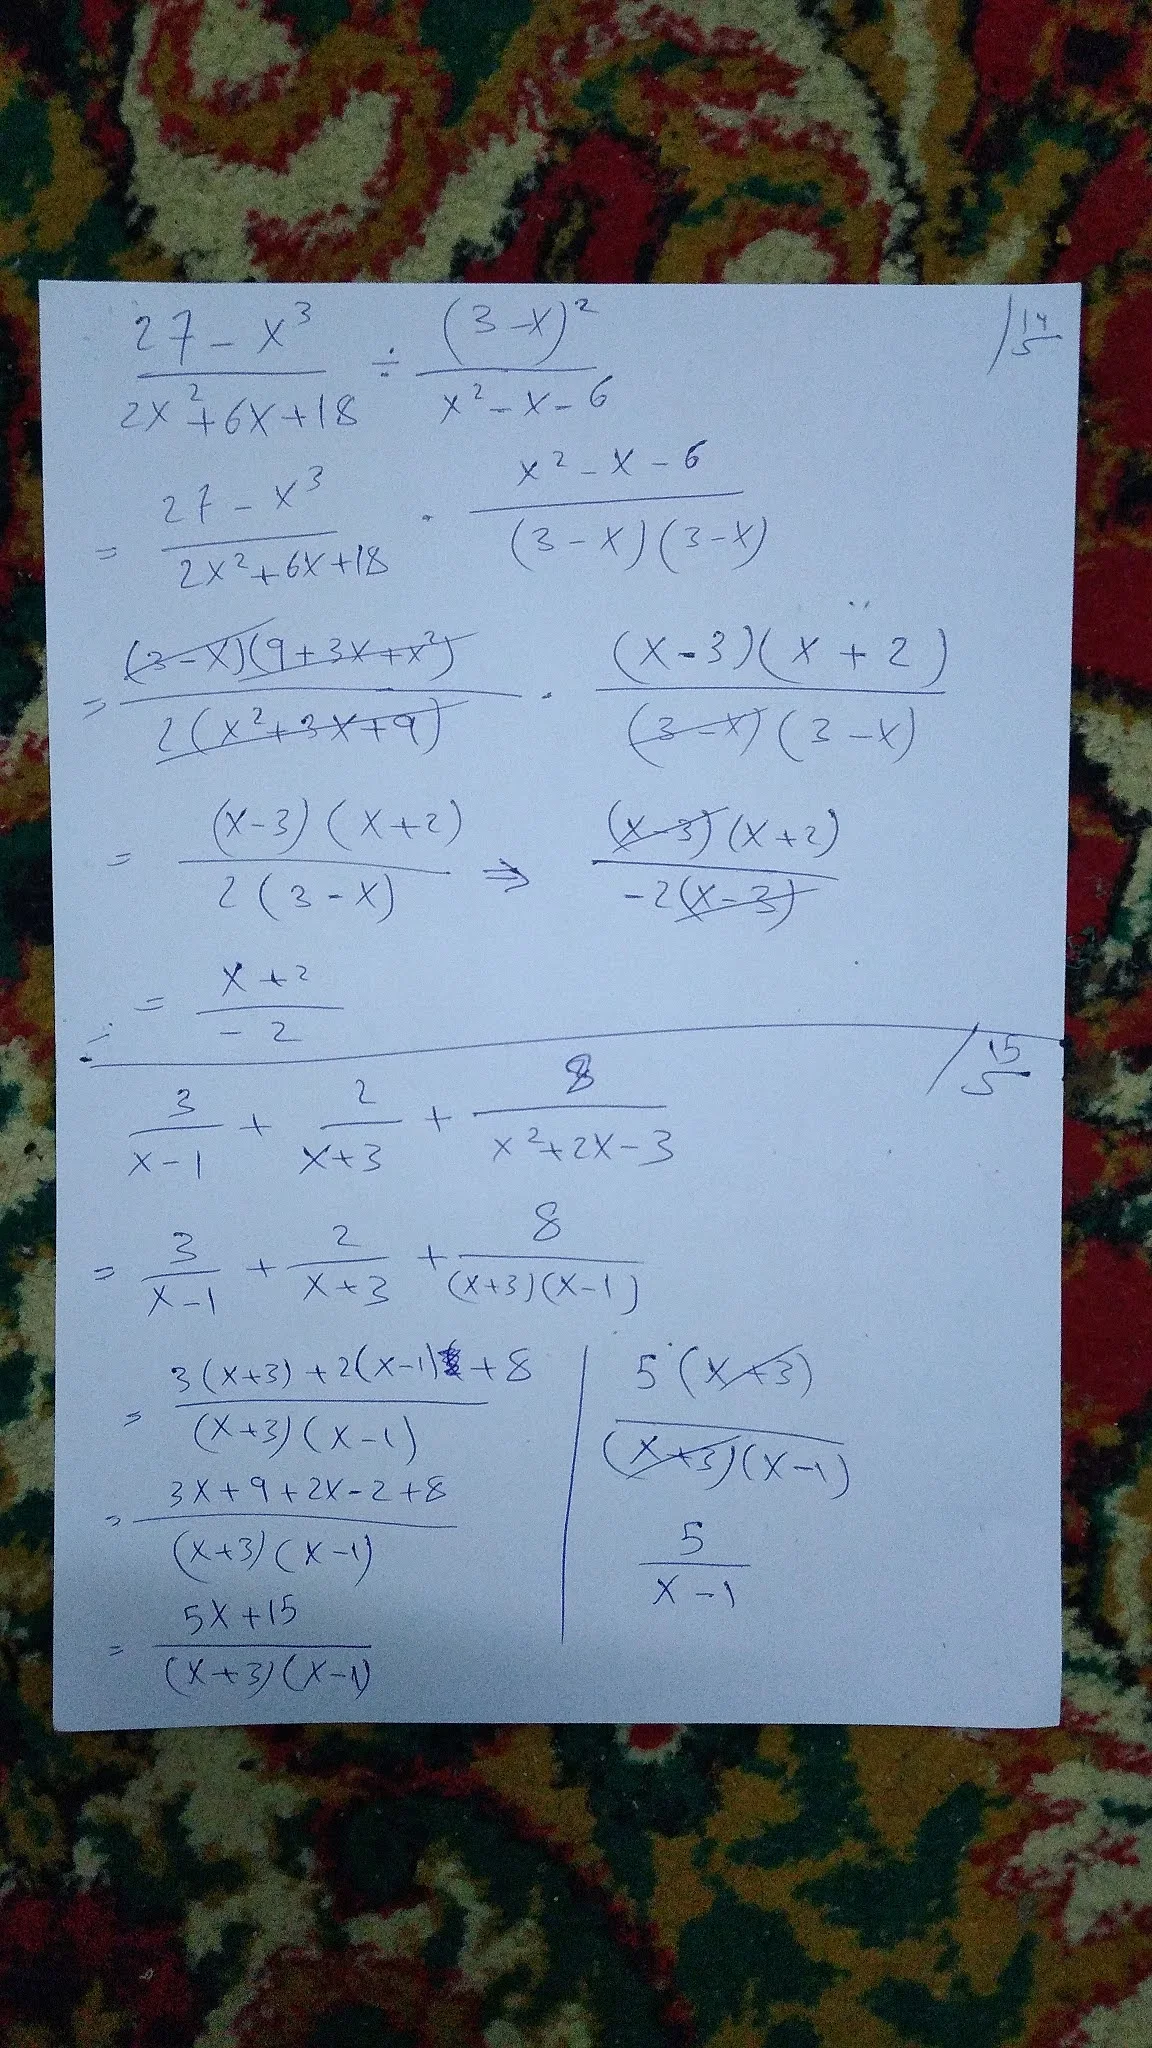 27 - x³ / 2x² + 6x + 18 ÷ (3 - x)² / x² - x - 6
/14/5
= 27 - x³ / 2x² + 6x + 18 · x² - x - 6 / (3 - x)(3 - x)
= (3 - x)(9 + 3x + x²) / 2(x² + 3x + 9) · (x - 3)(x + 2) / (3 - x)(3 - x)
= (x - 3)(x + 2) / 2(3 - x) ⇒ (x - 3)(x + 2) / -2(x - 3)
= x + 2 / - 2
/15/5
3 / x - 1 + 2 / x + 3 + 8 / x² + 2x - 3
= 3 / x - 1 + 2 / x + 3 + 8 / (x + 3)(x - 1)
= 3(x + 3) + 2(x - 1) + 8 / (x + 3)(x - 1)
= 3x + 9 + 2x - 2 + 8 / (x + 3)(x - 1)
= 5x + 15 / (x + 3)(x - 1)
5(x + 3) / (x + 3)(x - 1)
5 / x - 1